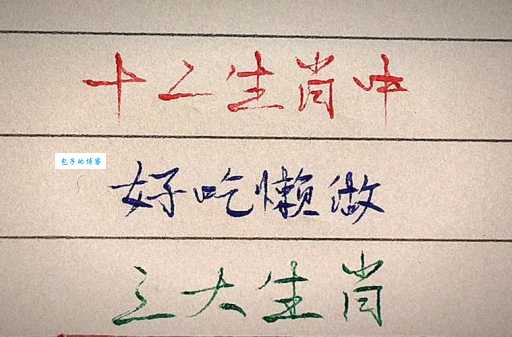 十二生肖中
包子的博客
好吃懒做
三大生肖